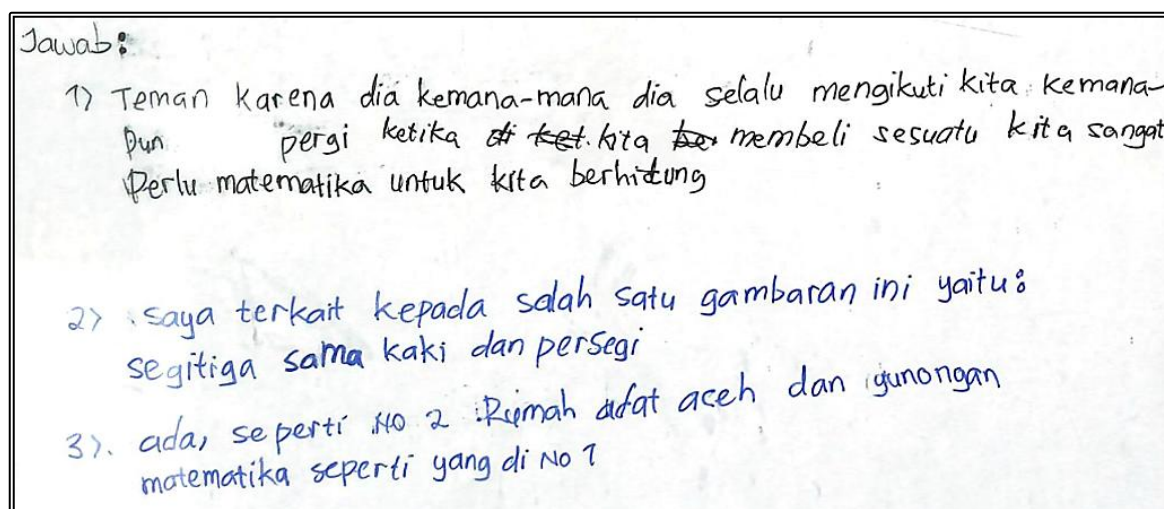 Jawab:
1) Teman karena dia kemana-mana dia selalu mengikuti kita kemana-
pun pergi ketika di ket. kita be membeli sesuatu kita sangat
perlu matematika untuk kita berhitung
2) saya terkait kepada salah satu gambaran ini yaitu:
segitiga sama kaki dan persegi
3). ada, seperti NO 2 Rumah adat aceh dan gunongan
matematika seperti yang di No 1